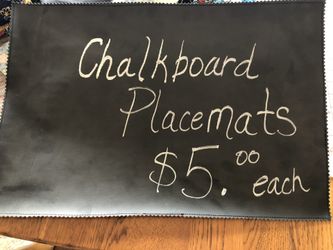 Chalkboard
Placemats
$5.00 each